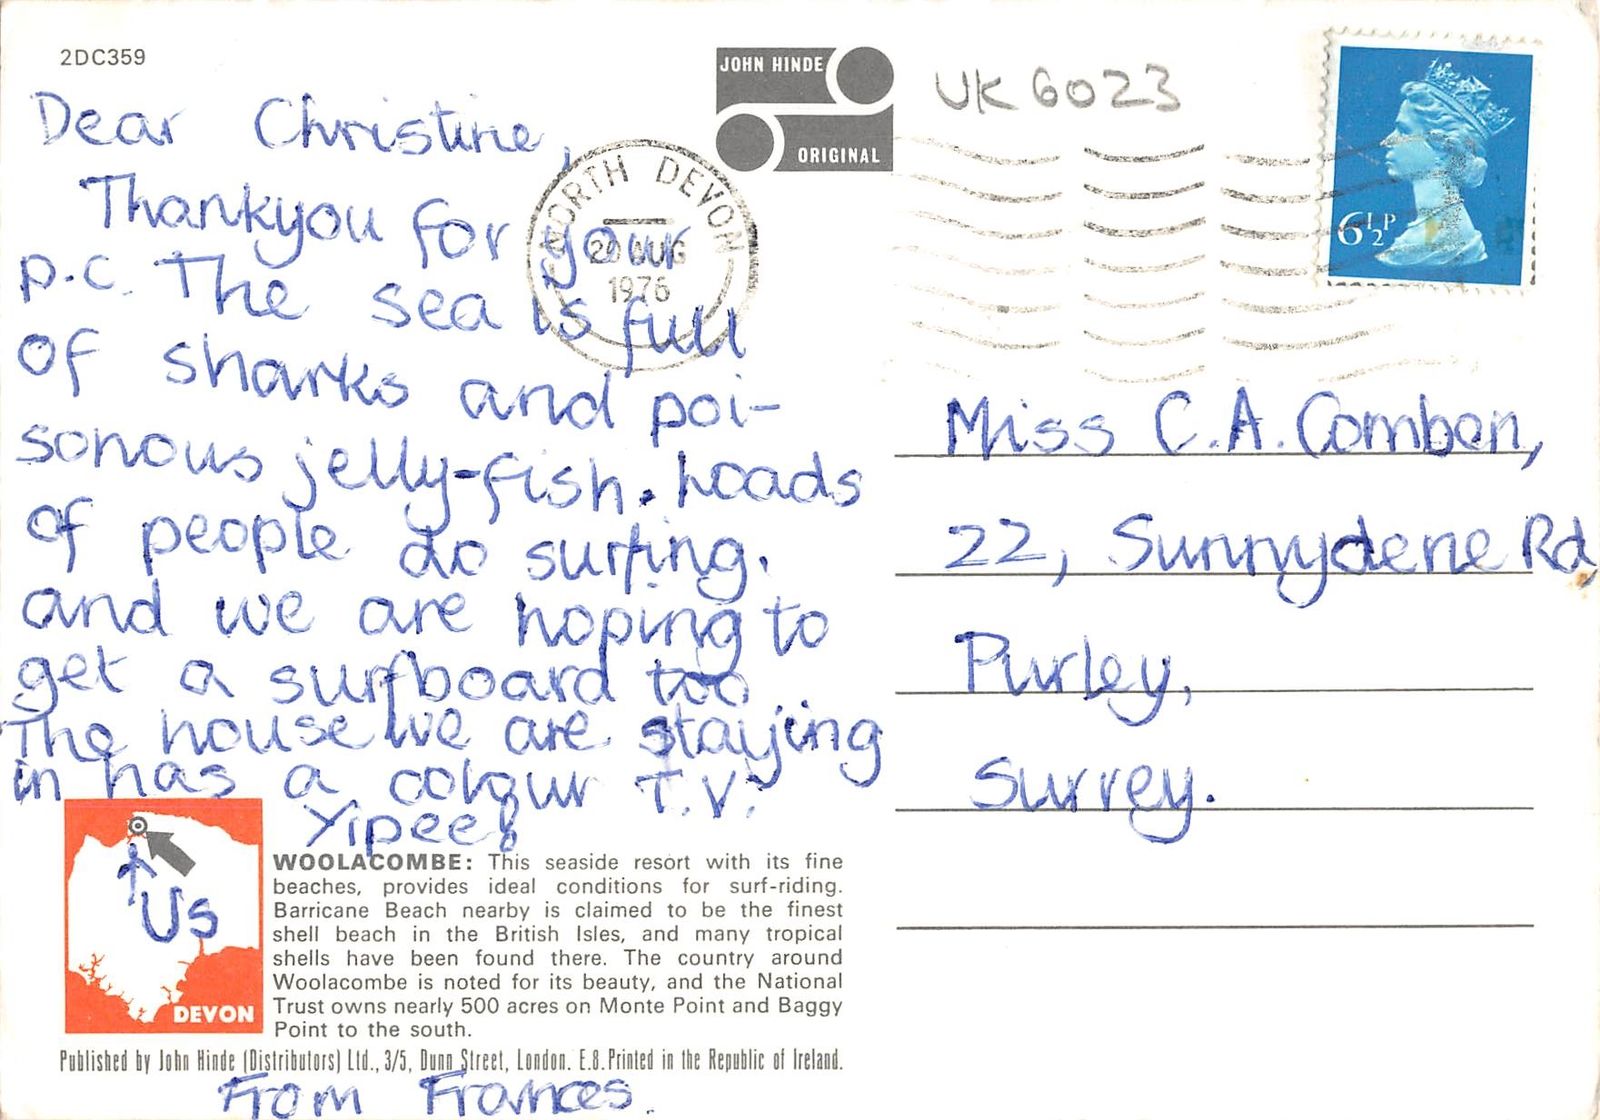 2DC359
JOHN HINDE
ORIGINAL
UK 6023
Dear Christine,
Thankyou for your
p.c. The sea is full
of sharks and poi-
sonous jelly-fish. Loads
of people do surfing.
and we are hoping to
get a surfboard too
The house we are staying
in has a colour T.V.
Yipee!
NORTH DEVON
20 AUG
1976
6½P
Miss C.A. Comben,
22, Sunnydene Rd,
Purley,
Surrey.
Us
DEVON
WOOLACOMBE: This seaside resort with its fine
beaches, provides ideal conditions for surf-riding.
Barricane Beach nearby is claimed to be the finest
shell beach in the British Isles, and many tropical
shells have been found there. The country around
Woolacombe is noted for its beauty, and the National
Trust owns nearly 500 acres on Monte Point and Baggy
Point to the south.
Published by John Hinde (Distributors) Ltd., 3/5, Dunn Street, London. E.8. Printed in the Republic of Ireland.
From Frances.